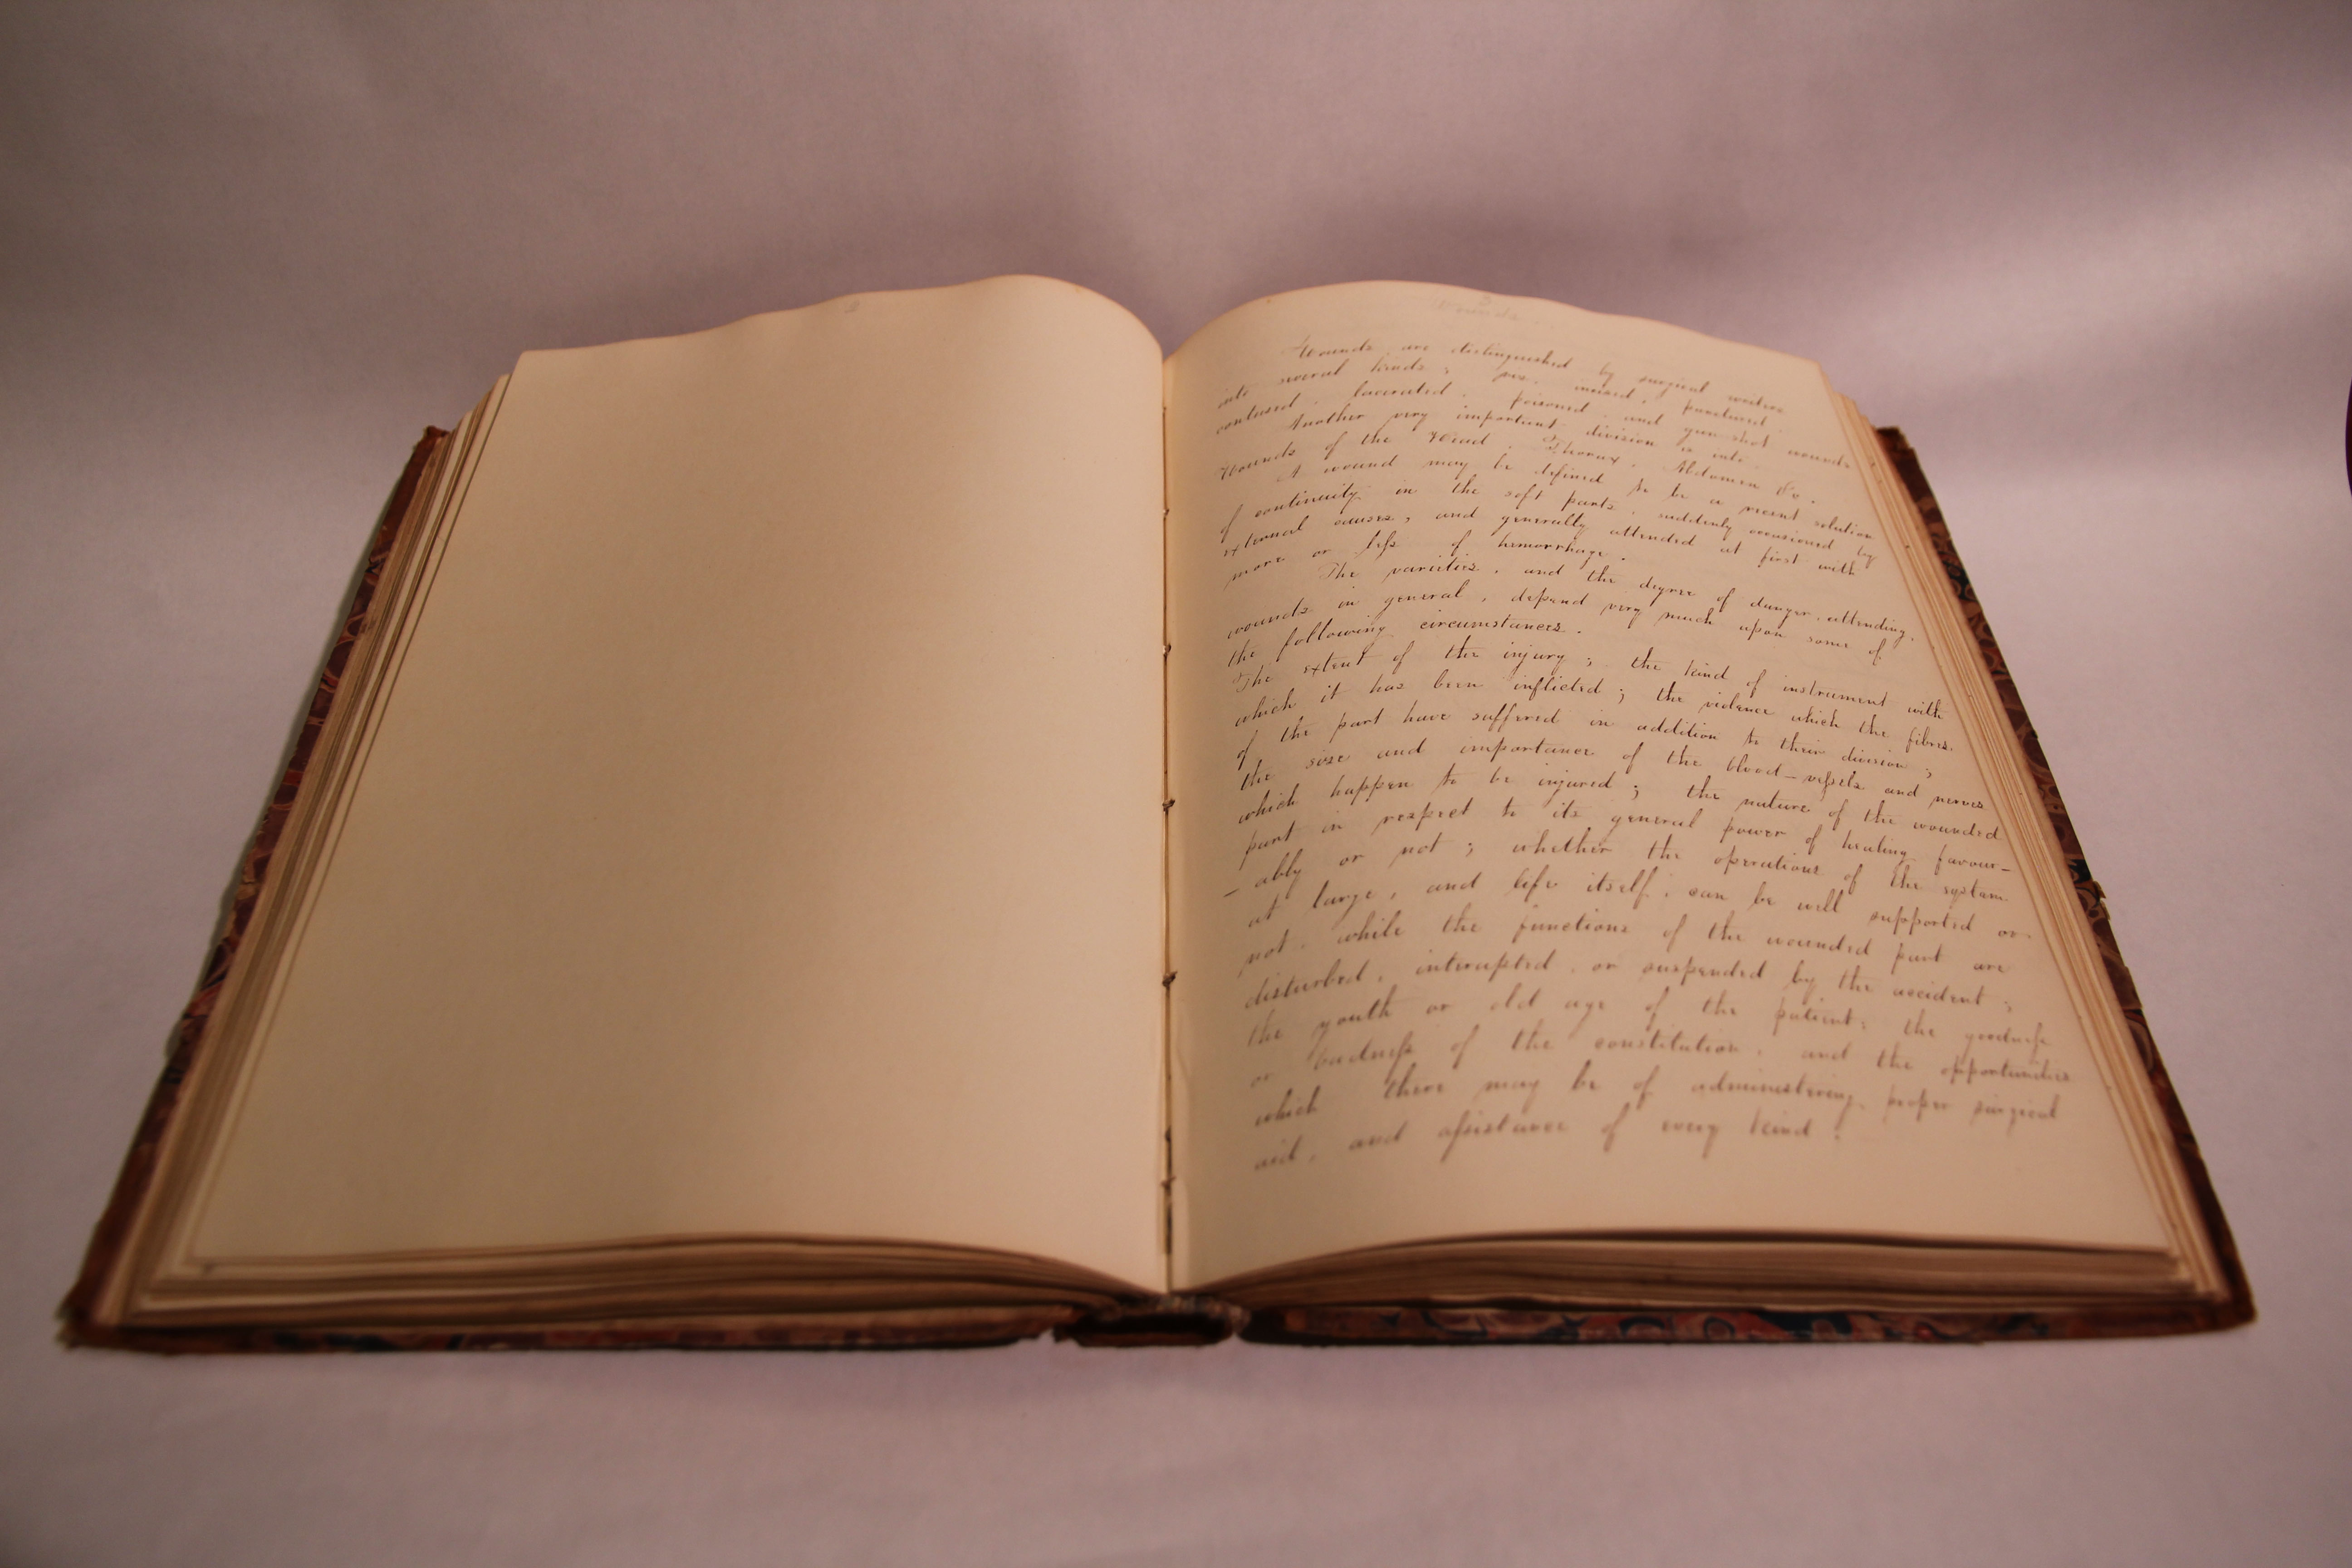 2
3
Wounds.
Wounds are distinguished by surgical writers
into several kinds; viz. incised, punctured
contused, lacerated, poisoned, and gun-shot wounds
Another very important division is into
Wounds of the Head, Thorax, Abdomen &c.
A wound may be defined to be a recent solution
of continuity in the soft parts, suddenly occasioned by
external causes, and generally attended at first with
more or less of hemorrhage.
The varieties, and the degree of danger attending,
wounds in general, depend very much upon some of
the following circumstances.
The extent of the injury; the kind of instrument with
which it has been inflicted; the violence which the fibres
of the part have suffered in addition to their division;
the size and importance of the blood-vessels and nerves
which happen to be injured; the nature of the wounded
part in respect to its general power of healing favour-
-ably or not; whether the operations of the system
at large, and life itself, can be well supported or
not, while the functions of the wounded part are
disturbed, interupted, or suspended by the accident;
the youth or old age of the patient; the goodness
or badness of the constitution, and the opportunities
which there may be of administering proper surgical
aid, and assistance of every kind.